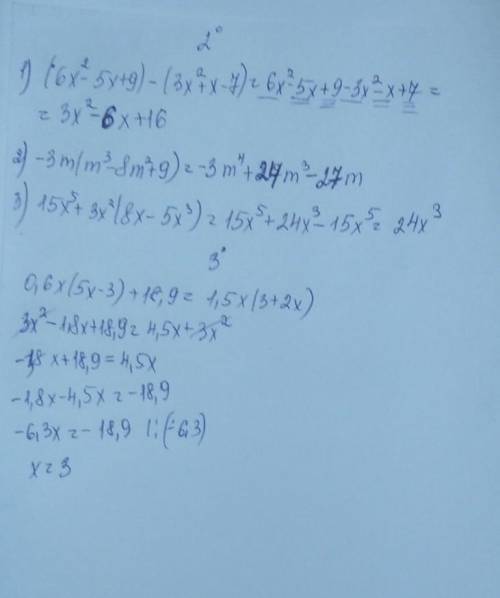 2°
1) (6x² - 5x + 9) - (3x² + x - 7) = 6x² - 5x + 9 - 3x² - x + 7 =
= 3x² - 6x + 16
2) -3m(m³ - 8m² + 9) = -3m⁴ + 24m³ - 27m
3) 15x⁵ + 3x²(8x - 5x³) = 15x⁵ + 24x³ - 15x⁵ = 24x³
3°
0,6x(5x - 3) + 18,9 = 1,5x(3 + 2x)
3x² - 1,8x + 18,9 = 4,5x + 3x²
-1,8x + 18,9 = 4,5x
-1,8x - 4,5x = -18,9
-6,3x = -18,9 |:(-6,3)
x = 3